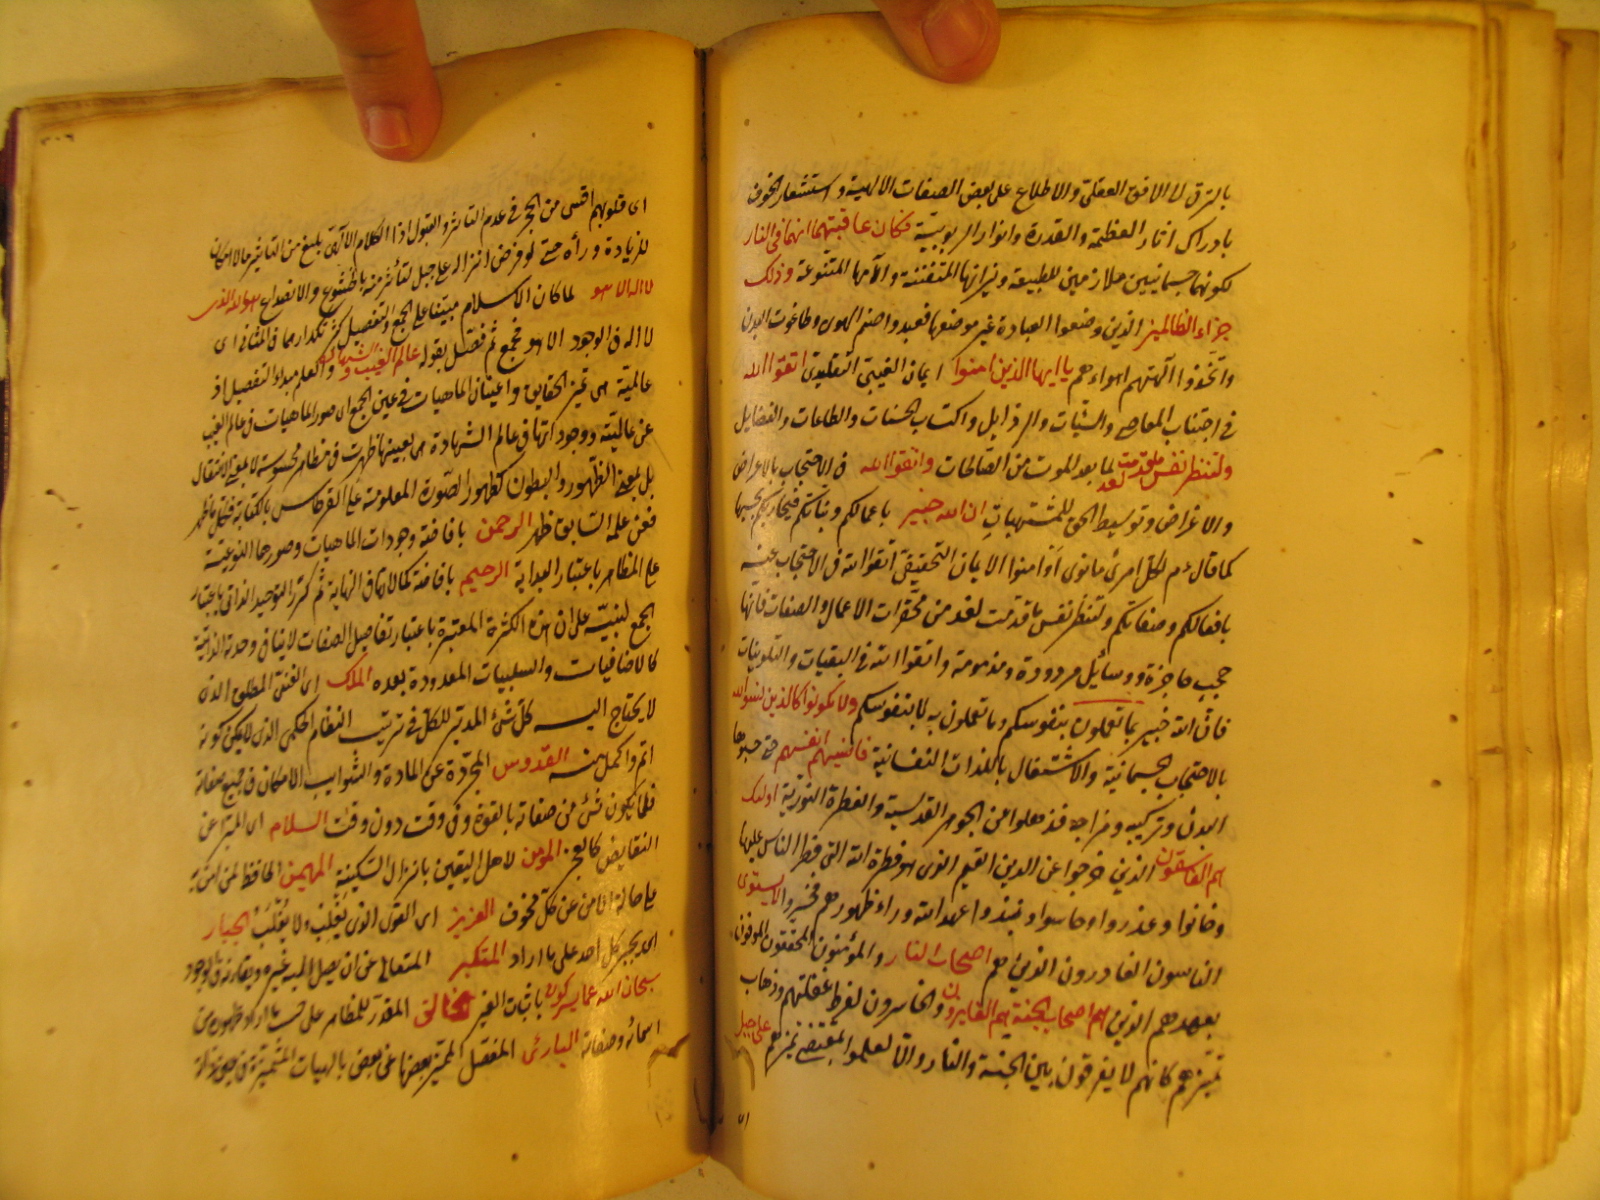 بالترقى الى الافق العقلى والاطلاع على بعض الصفات الالهية واستشعار الخوف
بادراك اثار العظمة والقدرة وانوار الربوبية فكان عاقبتهما انهما فى النار
لكونهما جسمانيين ملازمين للطبيعة ونيرانها المتفننة والامها المتنوعة وذلك
جزاء الظالمين الذين وضعوا العبادة غير موضعها فعبدوا صنم الهوى وطاغوت البدن
واتخذوا الهتهم اهواءهم يا ايها الذين امنوا ايمان الغيبى التقليدى اتقوا الله
فى اجتناب المعاصى والسيئات والرذايل واكتساب الحسنات والطاعات والفضايل
ولتنظر نفس ما قدمت لغد لما بعد الموت من الصالحات واتقوا الله فى الاحتجاب بالاعراض
والاغراض وتوسيط الحق للمشتهيات ان الله خبير باعمالكم ونياتكم فيجازيكم بحسبها
كما قال ءم لكل امرئ ما نوى او امنوا الايمان التحقيقى اتقوا الله فى الاحتجاب عنه
بافعالكم وصفاتكم ولتنظر نفس ما قدمت لغد من محقرات الاعمال والصفات فانها
حجب حاجزة ووسائل مردودة ومذمومة واتقوا الله فى البقيات والتلوينات
فان الله خبير بما تعملون بنفوسكم وما تعملون به لا بنفوسكم ولا تكونوا كالذين نسوا الله
بالاحتجاب الجسمانية والاشتغال باللذات النفسانية فانسيهم انفسهم حتى حسبوها
البدن وتركيبه ومزاجه فذهلوا من الجوهر القدسية والفطرة النورية اولئك
هم الفاسقون الذين خرجوا عن الدين القيم الذى هو فطرة الله التى فطر الناس عليها
وخانوا وغدروا وخاسوا ونبذوا عهد الله وراء ظهورهم فخسروا لا يستوى
الناسون الغادرون الذين هم اصحاب النار والمؤمنون المحققون الموفون
بعهدهم الذين هم اصحاب الجنة هم الفايزون والخاسرون لفرط غفلتهم وذهاب
تميزهم كانهم لا يفرقون بين الجنة والنار والا لعملوا بمقتضى تميزهم على جبل
٣٠٢
اى قلوبهم اقسى من الحجر فى عدم التاثر والقبول اذ الكلام الالهى بلغ من التاثير ما لا امكان
للزيادة وراءه حتى لو فرض انزاله على جبل لتأثر منه بالخشوع والانصداع هو الله الذى
لا اله الا هو لما كان الاسلام مبتنيا على الجمع والتفصيل كثر تكرارهما فى المثانى اى
لا اله فى الوجود الا هو فجمع ثم فصل بقوله عالم الغيب والشهادة والعلم مبداء التفصيل اذ
عالمية هى تميز الحقايق واعيان الماهيات فى عين الجمع اى صور الماهيات فى عالم الغيب
عن عالميته ووجوداتها فى عالم الشهادة هى بعينها ظهرت فى مظاهر محسوسة لا بمعنى الانتقال
بل بمعنى الظهور والبطون كظهور الصورة المعلومة على القرطاس بالكتابة
فعن علمه السابق ظهر الرحمن بافاضة وجودات الماهيات وصورها النوعية
على المظاهر باعتبار البداية الرحيم بافاضة كمالاتها فى النهاية ثم كرر التوحيد الذاتى باعتبار
الجمع لينبه على ان هذه الكثرة المعتبرة باعتبار تفاصيل الصفات لا ينافى وحدته الذاتية
كالاضافيات والسلبيات المعدودة بعده الملك اى الغنى المطلق الذى
لا يحتاج اليه كل شئ المدبر للكل فى ترتيب النظام الحكمى الذى لا يمكن كونه
اتم واكمل منه القدوس المجردة عن المادة والشوايب الامكان فى جميع صفاته
فلا يكون شئ من صفاته بالقوة وفى وقت دون وقت السلام اى المبرا عن
النقايص كالعجز المؤمن لاهل اليقين بانزال السكينة المهيمن الحافظ لمن امنه
على حالة الامن عن كل مخوف العزيز اى القوى الذى يغلب ولا يغلب الجبار
اى يجبر كل احد على ما اراد المتكبر المتعالى عن ان يصل اليه غيره ويقارنه فى الوجود
سبحان الله عما يشركون باثبات الغير الخالق المقدر للمظاهر على حسب ما اراد ظهوره من
اسمائه وصفاته البارئ المفصل المميز بعضها عن بعض بالهيات المتميزة